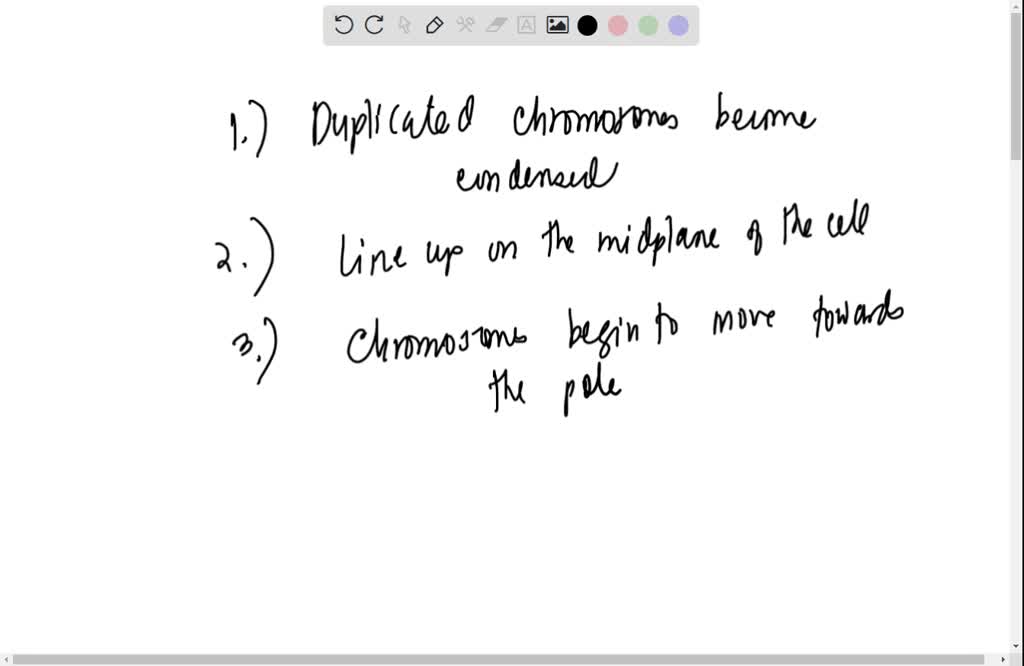 1.) Duplicated chromosomes become
condensed
2.) Line up on the midplane of the cell
3.) Chromosomes begin to move towards
the pole